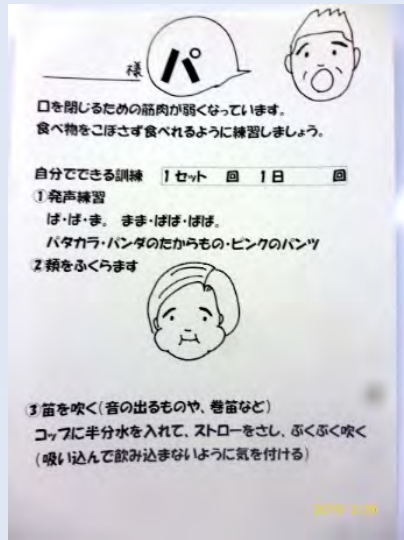 様
パ
口を閉じるための筋肉が弱くなっています。
食べ物をこぼさず食べれるように練習しましょう。
自分でできる訓練 1セット 回 1日 回
①発声練習
ぱ・ば・ま。 まま・ばば・ぱぱ。
パタカラ・パンダのたからもの・ピンクのパンツ
②頬をふくらます
③笛を吹く(音の出るものや、巻笛など)
コップに半分水を入れて、ストローをさし、ぶくぶく吹く
(吸い込んで飲み込まないように気を付ける)